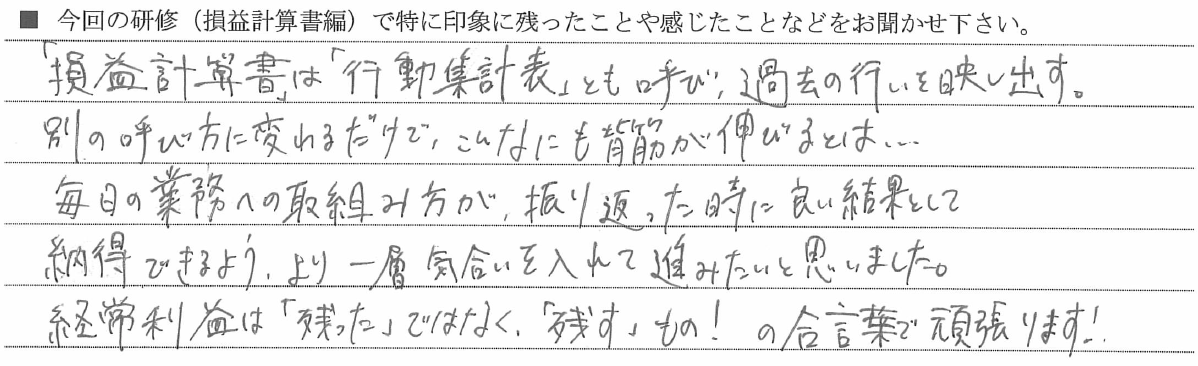 ■ 今回の研修（損益計算書編）で特に印象に残ったことや感じたことなどをお聞かせ下さい。
「損益計算書」は「行動集計表」とも呼び、過去の行いを映し出す。
別の呼び方に変わるだけで、こんなにも背筋が伸びるとは...
毎日の業務への取組み方が、振り返った時に良い結果として
納得できるよう、より一層気合いを入れて進みたいと思いました。
経常利益は「残った」ではなく、「残す」もの！の合言葉で頑張ります！